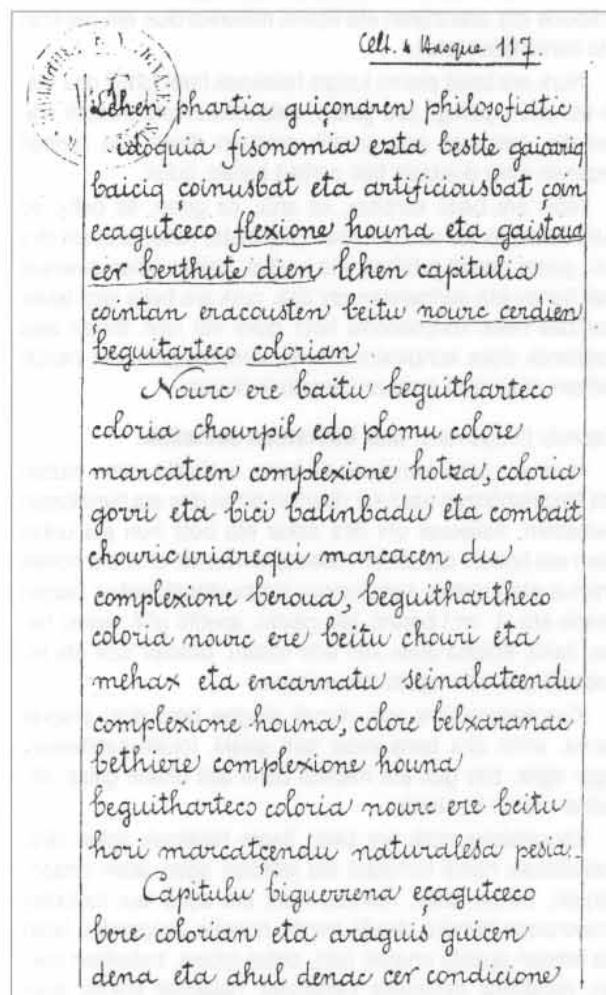 Celt. & Basque 117.
Lehen phartia guiçondren philosofiatic
idoquia fisonomia ezta bestte gaiaric
baiciq coinusbat eta artificiousbat coin
eçagutceco flexione houna eta gaistouc
cer berthute dien lehen capitulia
cointan eracousten beitu nourc cerdien
beguitarteco colorian
Nourc ere baitu beguitharteco
coloria chourpil edo plomu colore
marcatcen complexione hotza, coloria
gorri eta bici balinbadu eta combait
chouric uriarequi marcacen du
complexione beroua, beguithartheco
coloria nourc ere beitu chouri eta
mehax eta encarnatu seinalatcendu
complexione houna, colore belxaranac
bethiere complexione houna
beguitharteco coloria nourc ere beitu
hori marcatcendu naturalesa pesia.
Capitulu biguerrena eçagutceco
bere colorian eta araguis guicen
dena eta ahul denac cer condicione